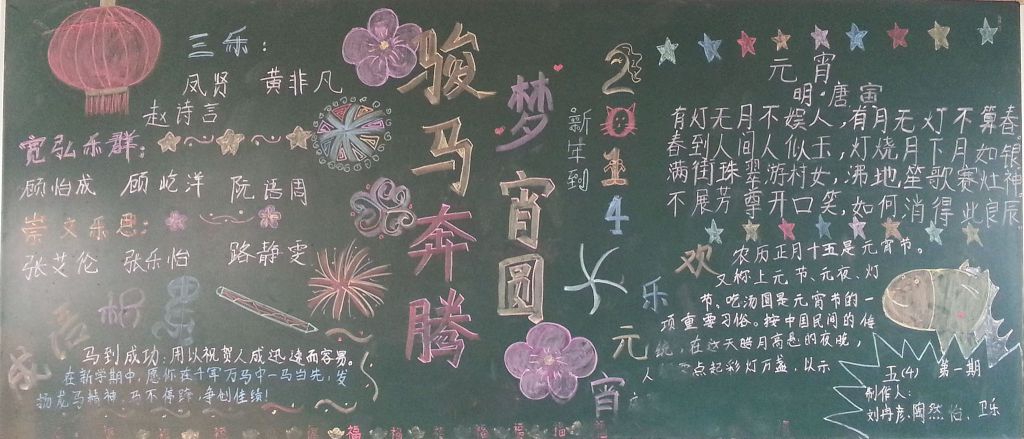 三乐：
凤贤 黄非凡
赵诗言
宽弘乐群：
顾怡成 顾屹洋 阮语周
崇文乐思：
张艾伦 张乐怡 路静雯
成语
马到成功：用以祝贺人成迅速而容易。
在新学期中，愿你在千军万马中一马当先，发
扬龙马精神，马不停蹄，争创佳绩！
骏马奔腾
梦宵圆
新年到
2014
欢乐元宵
元宵
明·唐寅
有灯无月不娱人，有月无灯不算春。
春到人间人似玉，灯烧月下月如银。
满街珠翠游村女，沸地笙歌赛灶神。
不展芳尊开口笑，如何消得此良辰
农历正月十五是元宵节。
又称上元节、元夜、灯
节。吃汤圆是元宵节的一
项重要习俗。按中国民间的传
统，在这天皓月高悬的夜晚，
人 点起彩灯万盏，以示
五(4) 第一期
制作人：
刘冉彦、陶然怡、卫乐
福 福 福 福 福